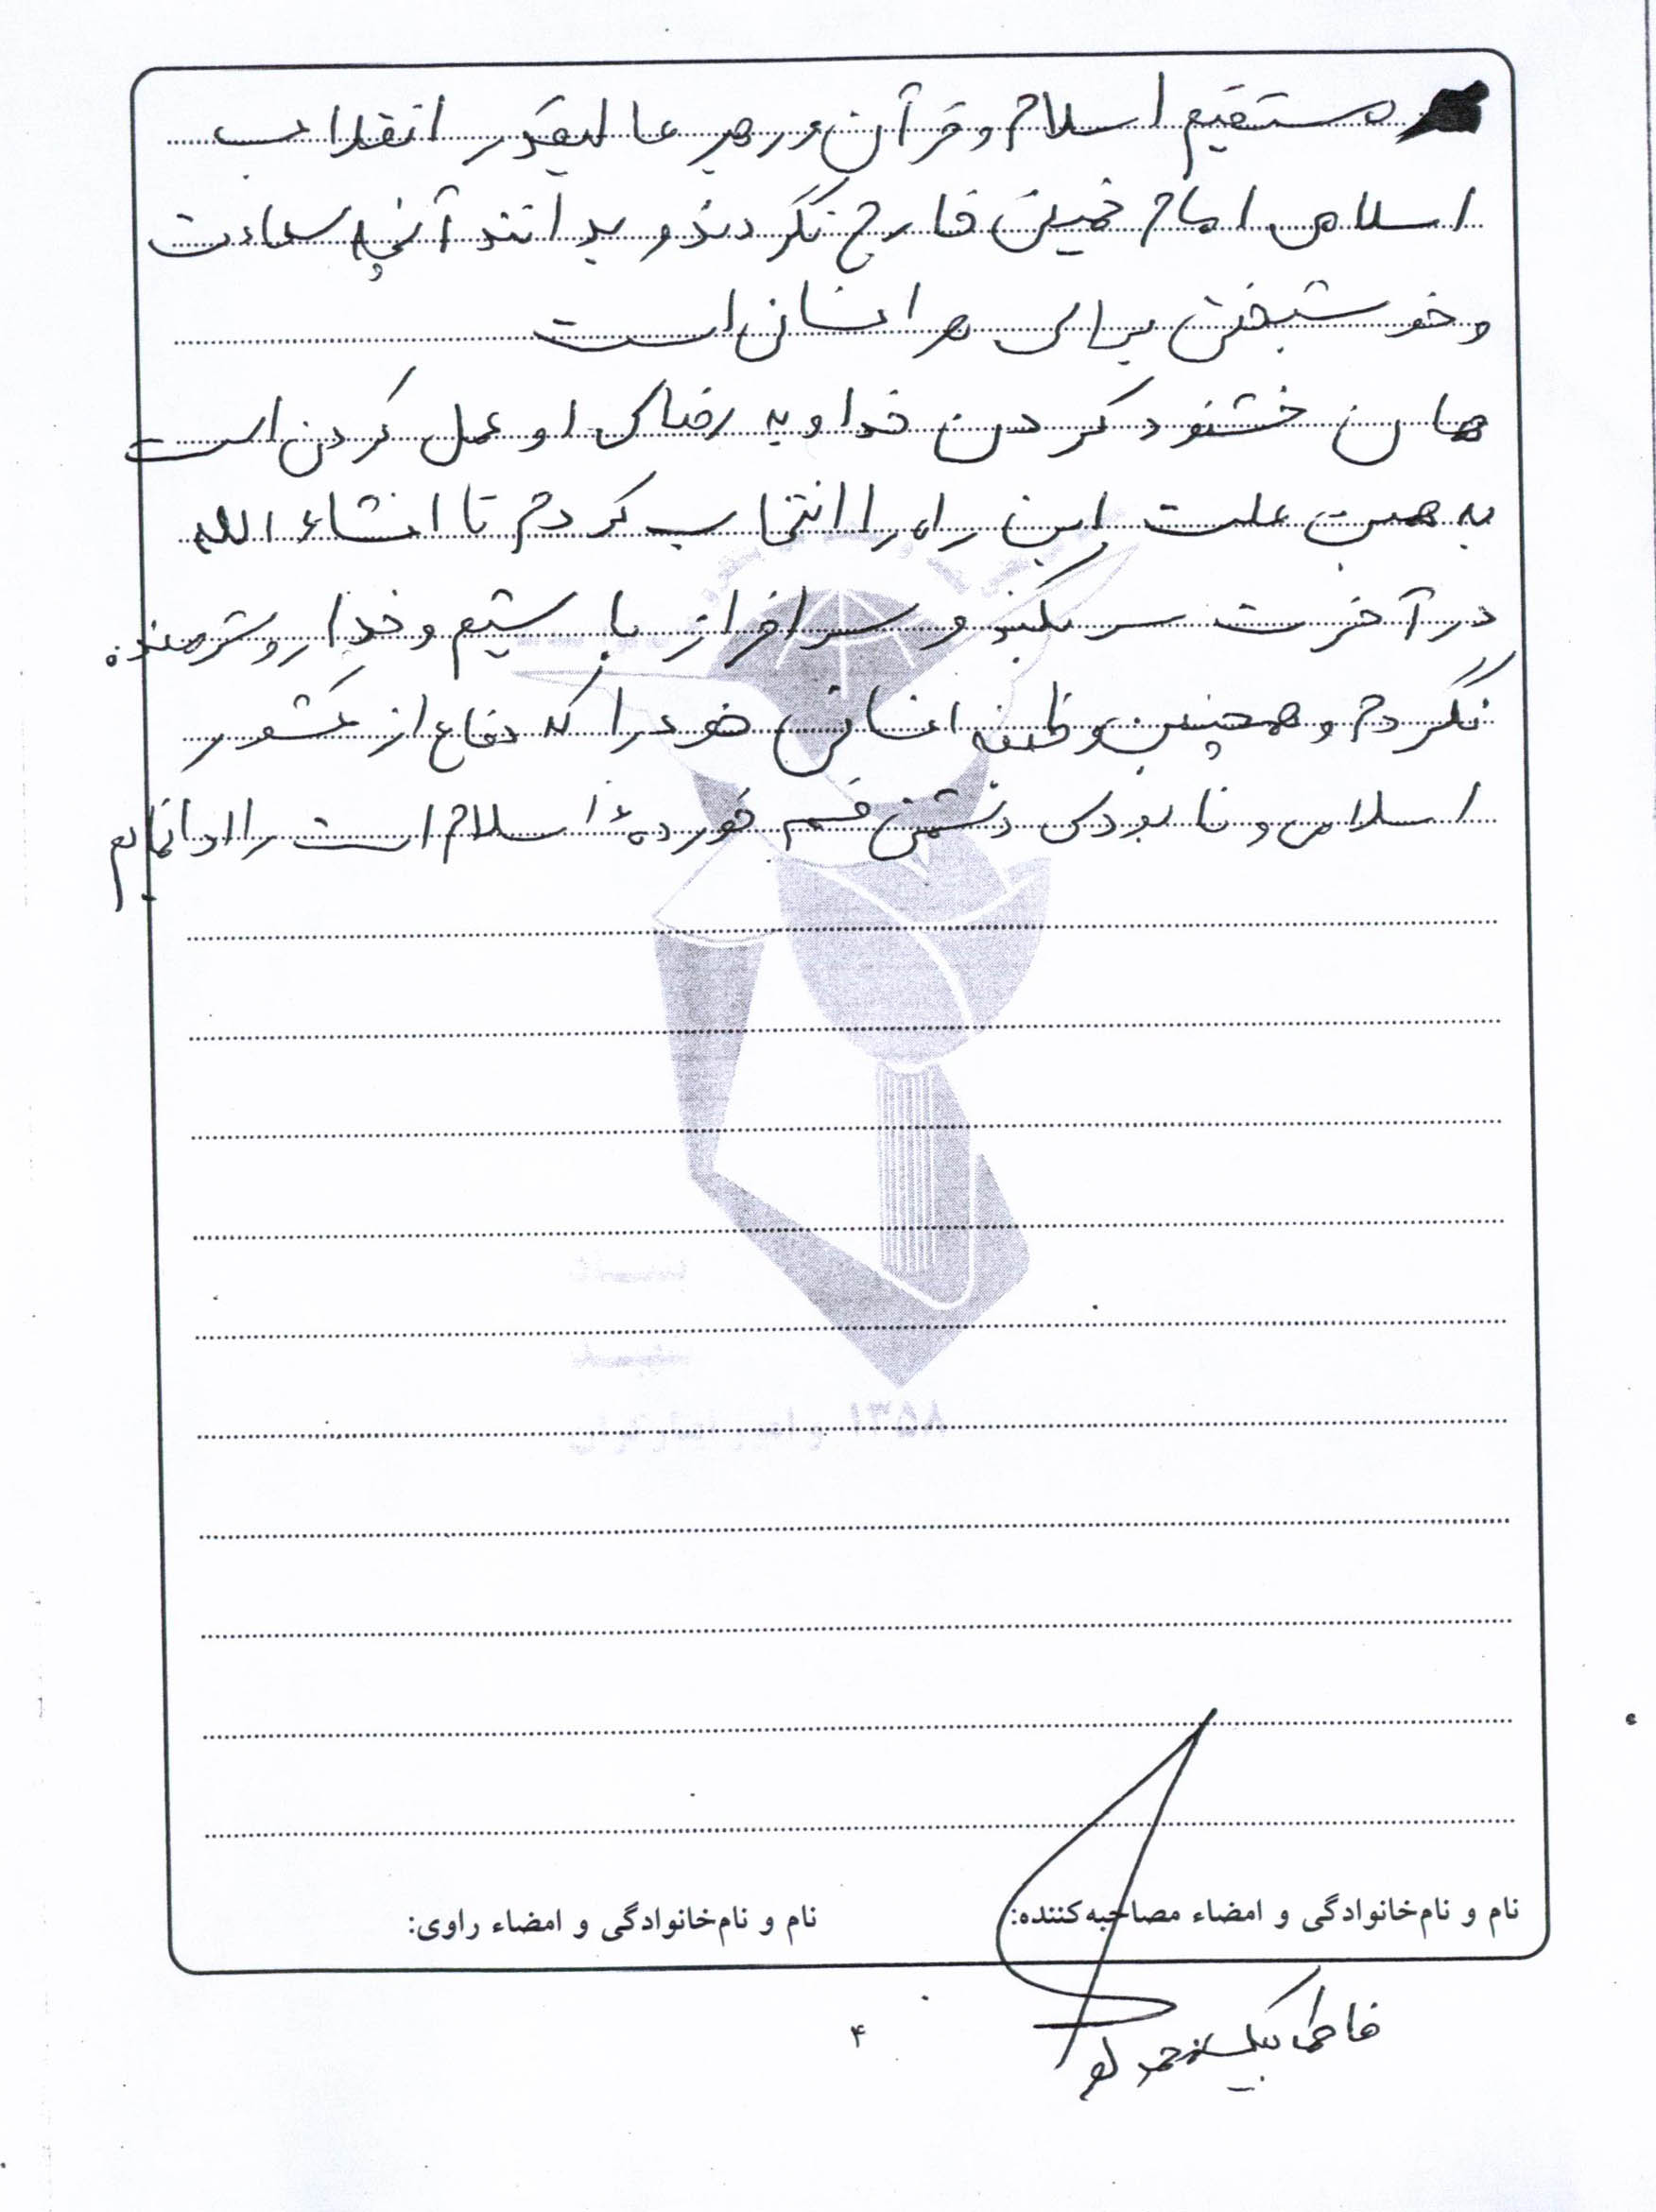 مستقیم اسلام و قرآن و رهبر عالیقدر انقلاب
اسلامی امام خمینی خارج نگردند و بدانند آنچه سعادت
و خوشبختی برای هر انسانی است
همان خشنود کردن خدا و به رضای او عمل کردن است
به همین علت این راه را انتخاب کردم تا انشاء الله
در آخرت سربلند و سرافراز باشیم و خدا روشرمنده
نگردم و همچنین وظیفه انسانی خود را که دفاع از کشور
اسلامی و نابودی دشمن قسم خوردهٔ اسلام است را ادا نمایم
۱۳۵۸
نام و نام‌خانوادگی و امضاء مصاحبه‌کننده:
نام و نام‌خانوادگی و امضاء راوی:
فاطمه
۴